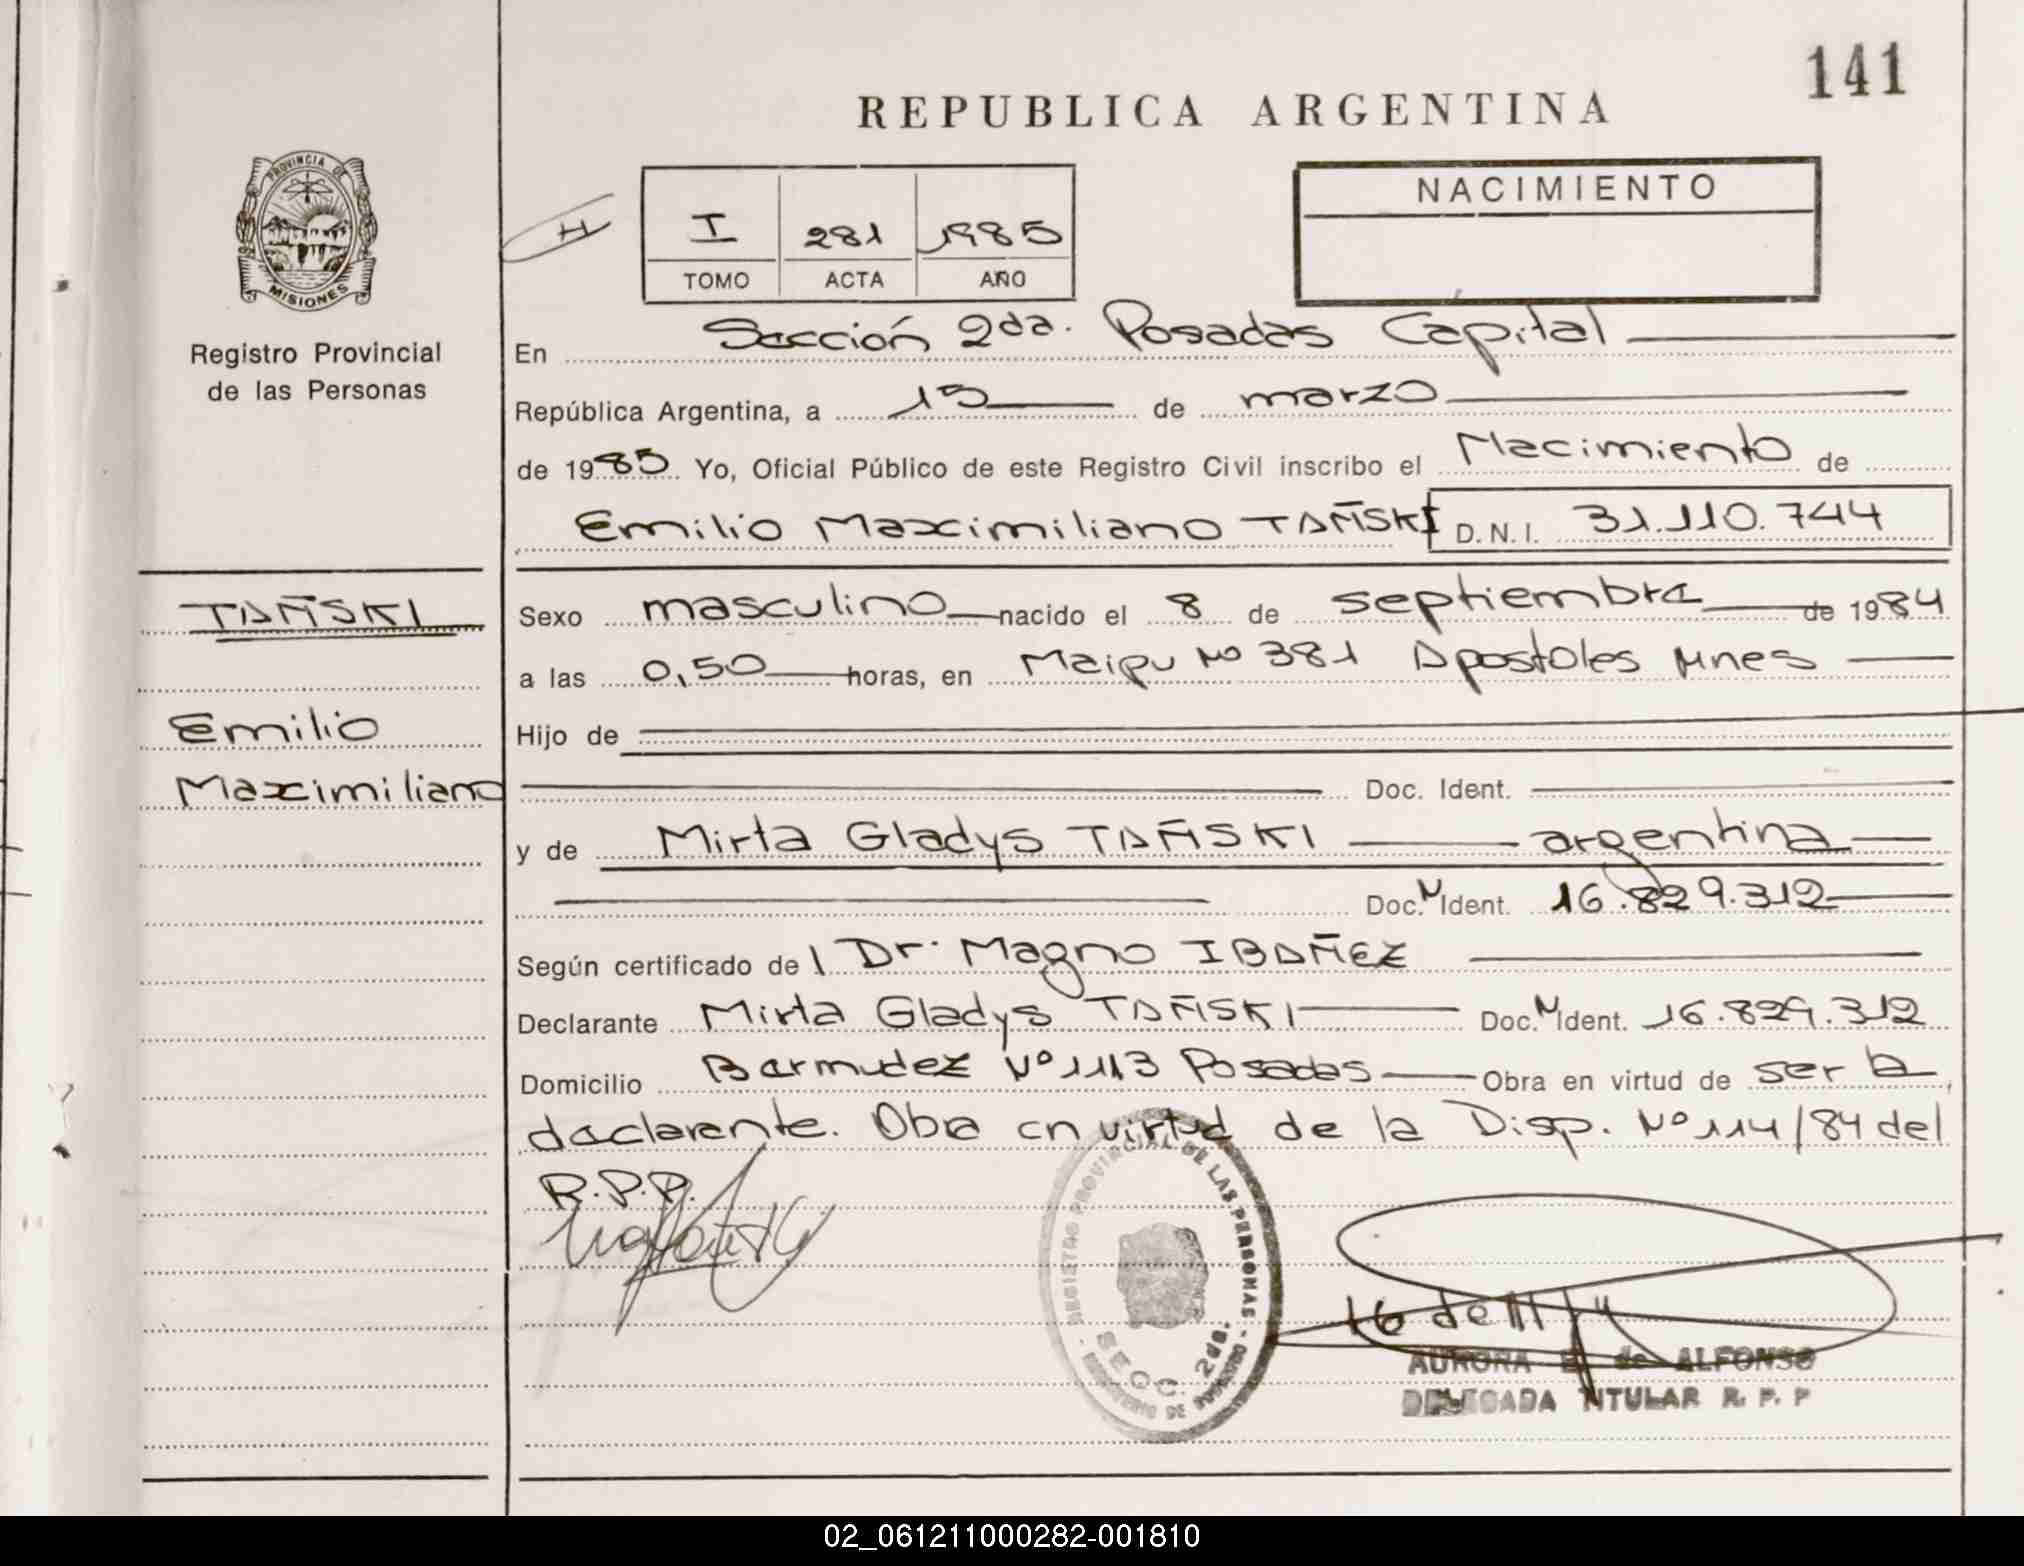 141
REPUBLICA ARGENTINA
PROVINCIA DE
MISIONES
Registro Provincial
de las Personas
H
I 281 1985
TOMO ACTA AÑO
NACIMIENTO
En Sección 2da. Posadas Capital
República Argentina, a 15 de marzo
de 1985 Yo, Oficial Público de este Registro Civil inscribo el Nacimiento de
Emilio Maximiliano TAÑSKI D.N.I. 31.110.744
TAÑSKI
Emilio
Maximiliano
Sexo masculino nacido el 8 de septiembre de 1984
a las 0,50 horas, en Maipu Nº 381 Apostoles Mnes
Hijo de
Doc. Ident.
y de Mirta Gladys TAÑSKI argentina
Doc. N Ident. 16.829.312
Según certificado del Dr. Magno IBAÑEZ
Declarante Mirta Gladys TAÑSKI Doc. N Ident. 16.829.312
Domicilio Bermudez Nº 1113 Posadas Obra en virtud de ser la
declarante. Obra en virtud de la Disp. Nº 114/84 del
R.P.P.
REGISTRO PROVINCIAL DE LAS PERSONAS
SECC. 2da.
MINISTERIO DE GOBIERNO
AURORA E. de ALFONSO
DELEGADA TITULAR R. P. P
02_061211000282-001810